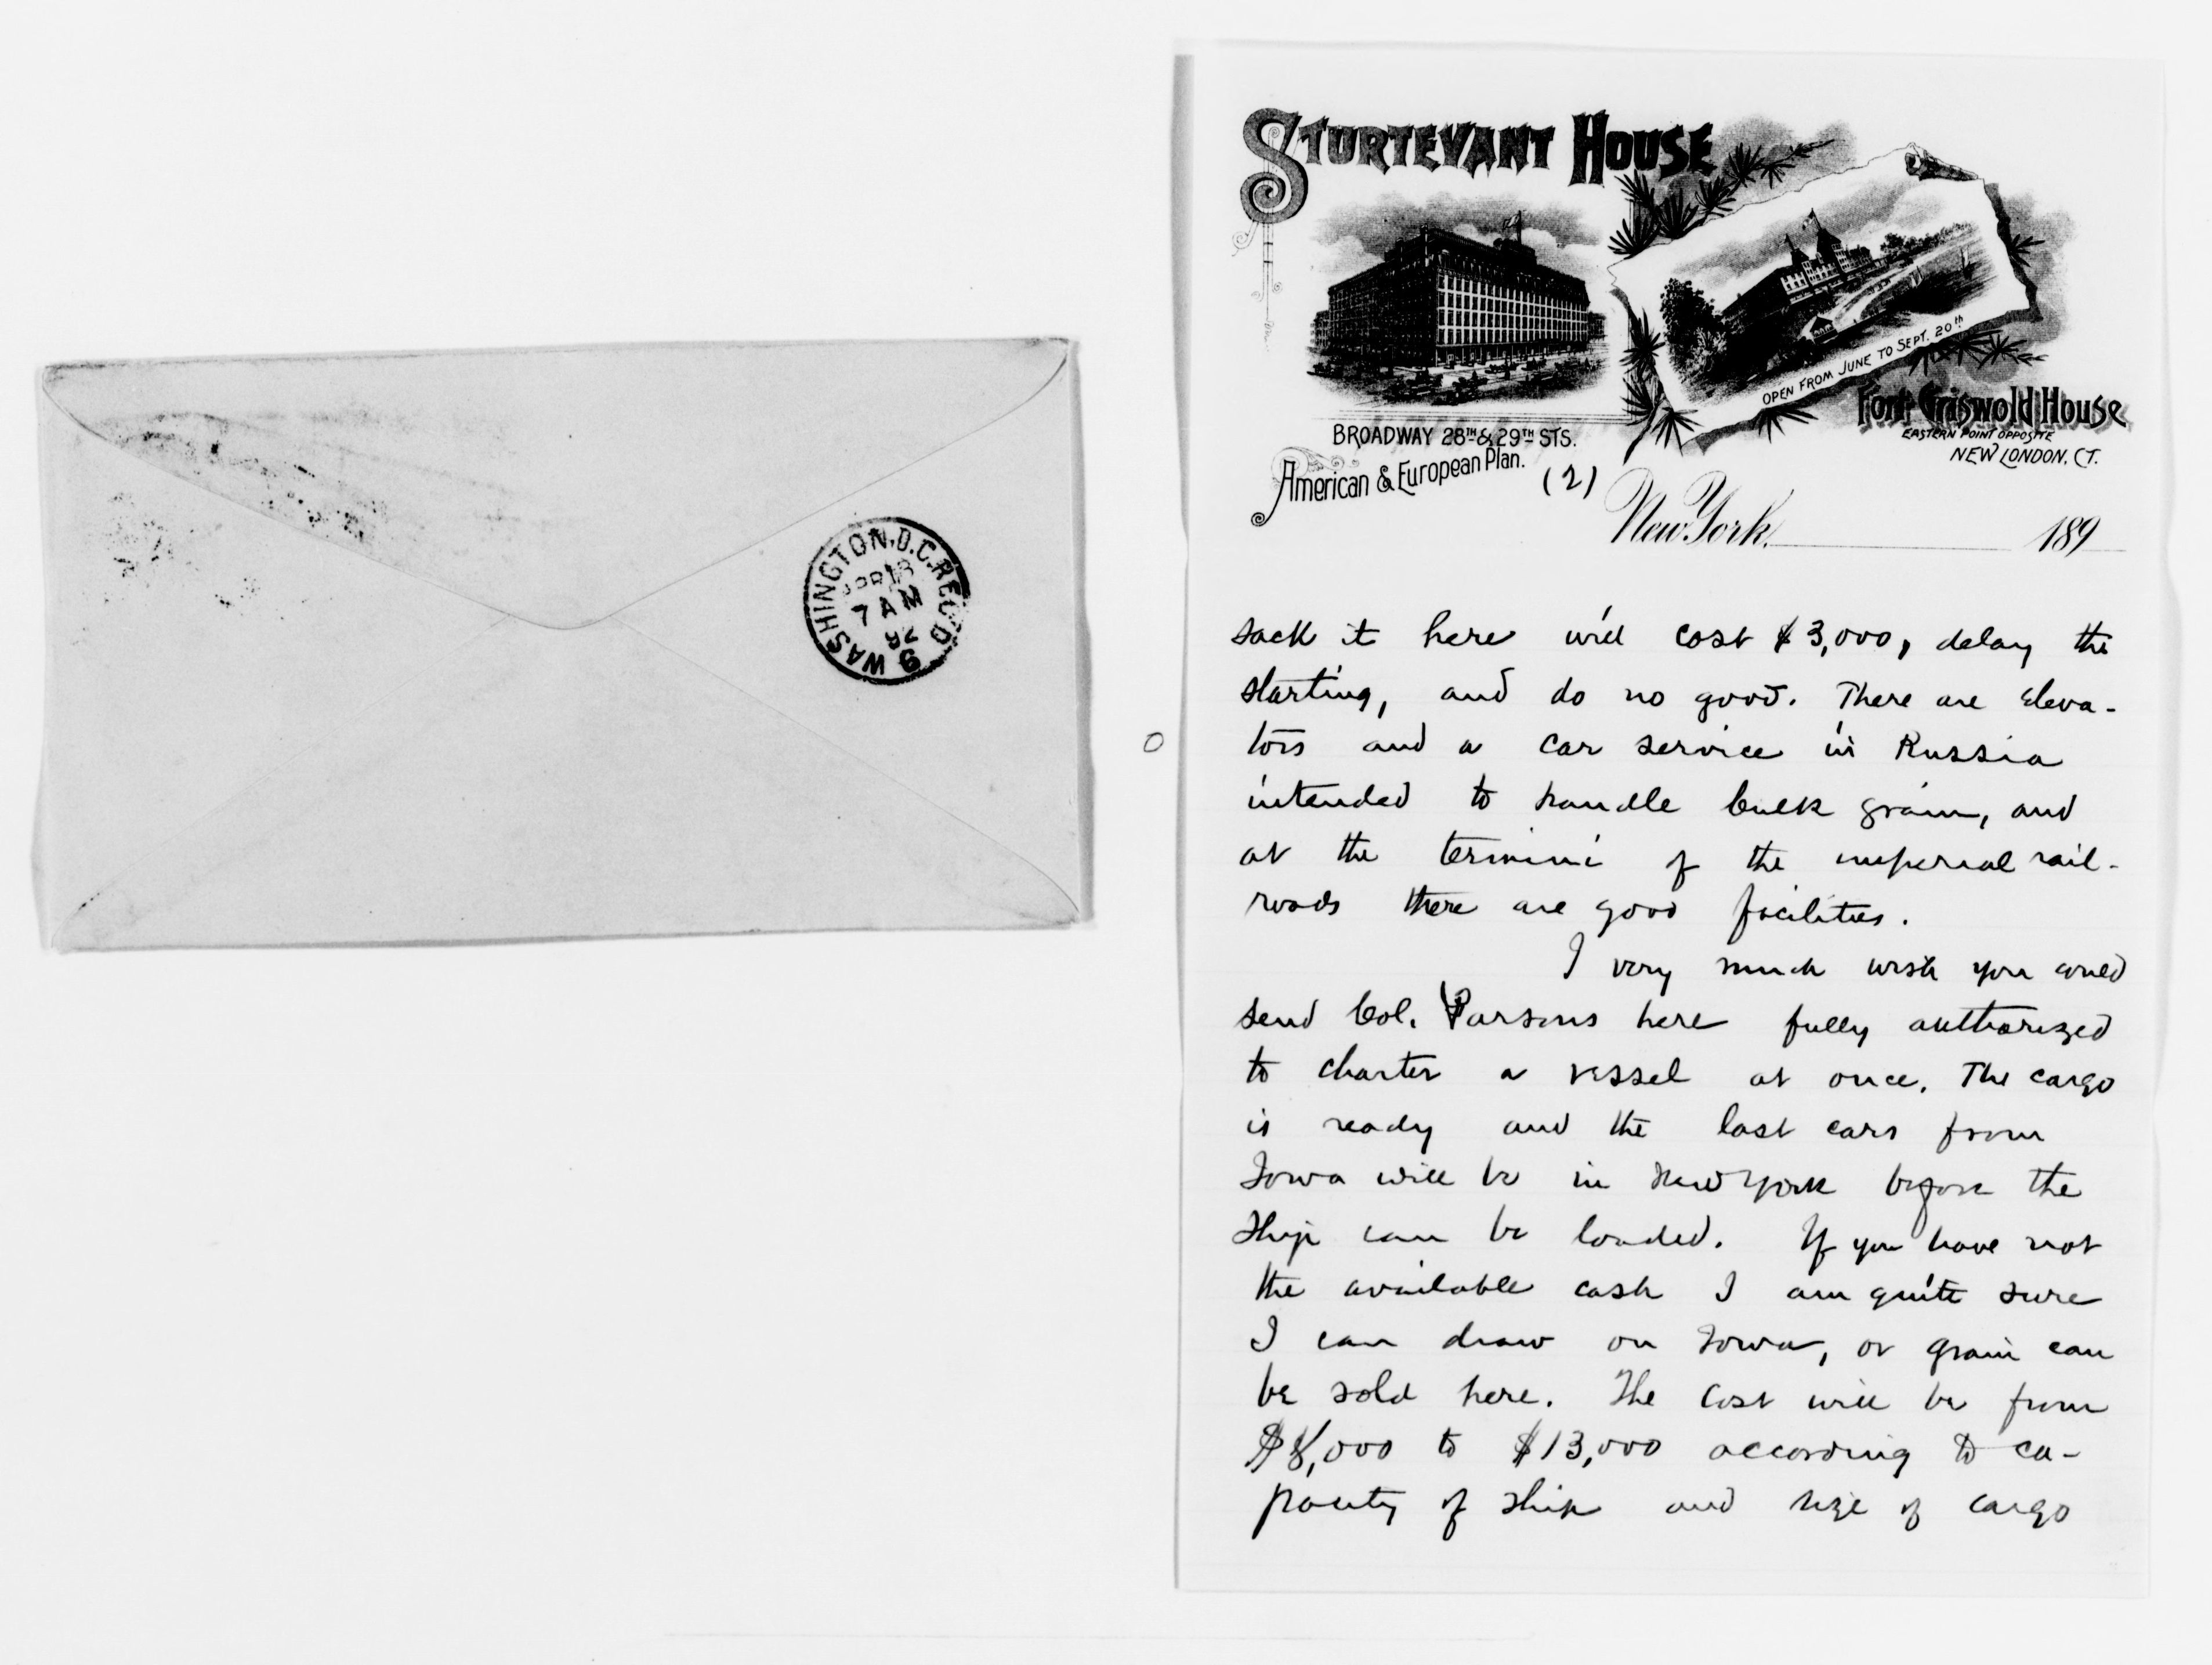 WASHINGTON, D.C. REC'D
APR 18
7 AM
92
6
STURTEVANT HOUSE
OPEN FROM JUNE TO SEPT. 20th
Fort Griswold House
EASTERN POINT OPPOSITE
NEW LONDON, CT.
BROADWAY 28TH & 29TH STS.
American & European Plan.
(2)
New York, 189
sack it here will cost $3,000, delay the
starting, and do no good. There are eleva-
tors and a car service in Russia
intended to handle bulk grain, and
at the termini of the imperial rail-
roads there are good facilities.
I very much wish you could
send Col. Parsons here fully authorized
to charter a vessel at once. The cargo
is ready and the last cars from
Iowa will be in New York before the
ship can be loaded. If you have not
the available cash I am quite sure
I can draw on Iowa, or grain can
be sold here. The cost will be from
$8,000 to $13,000 according to ca-
pacity of ship and size of cargo